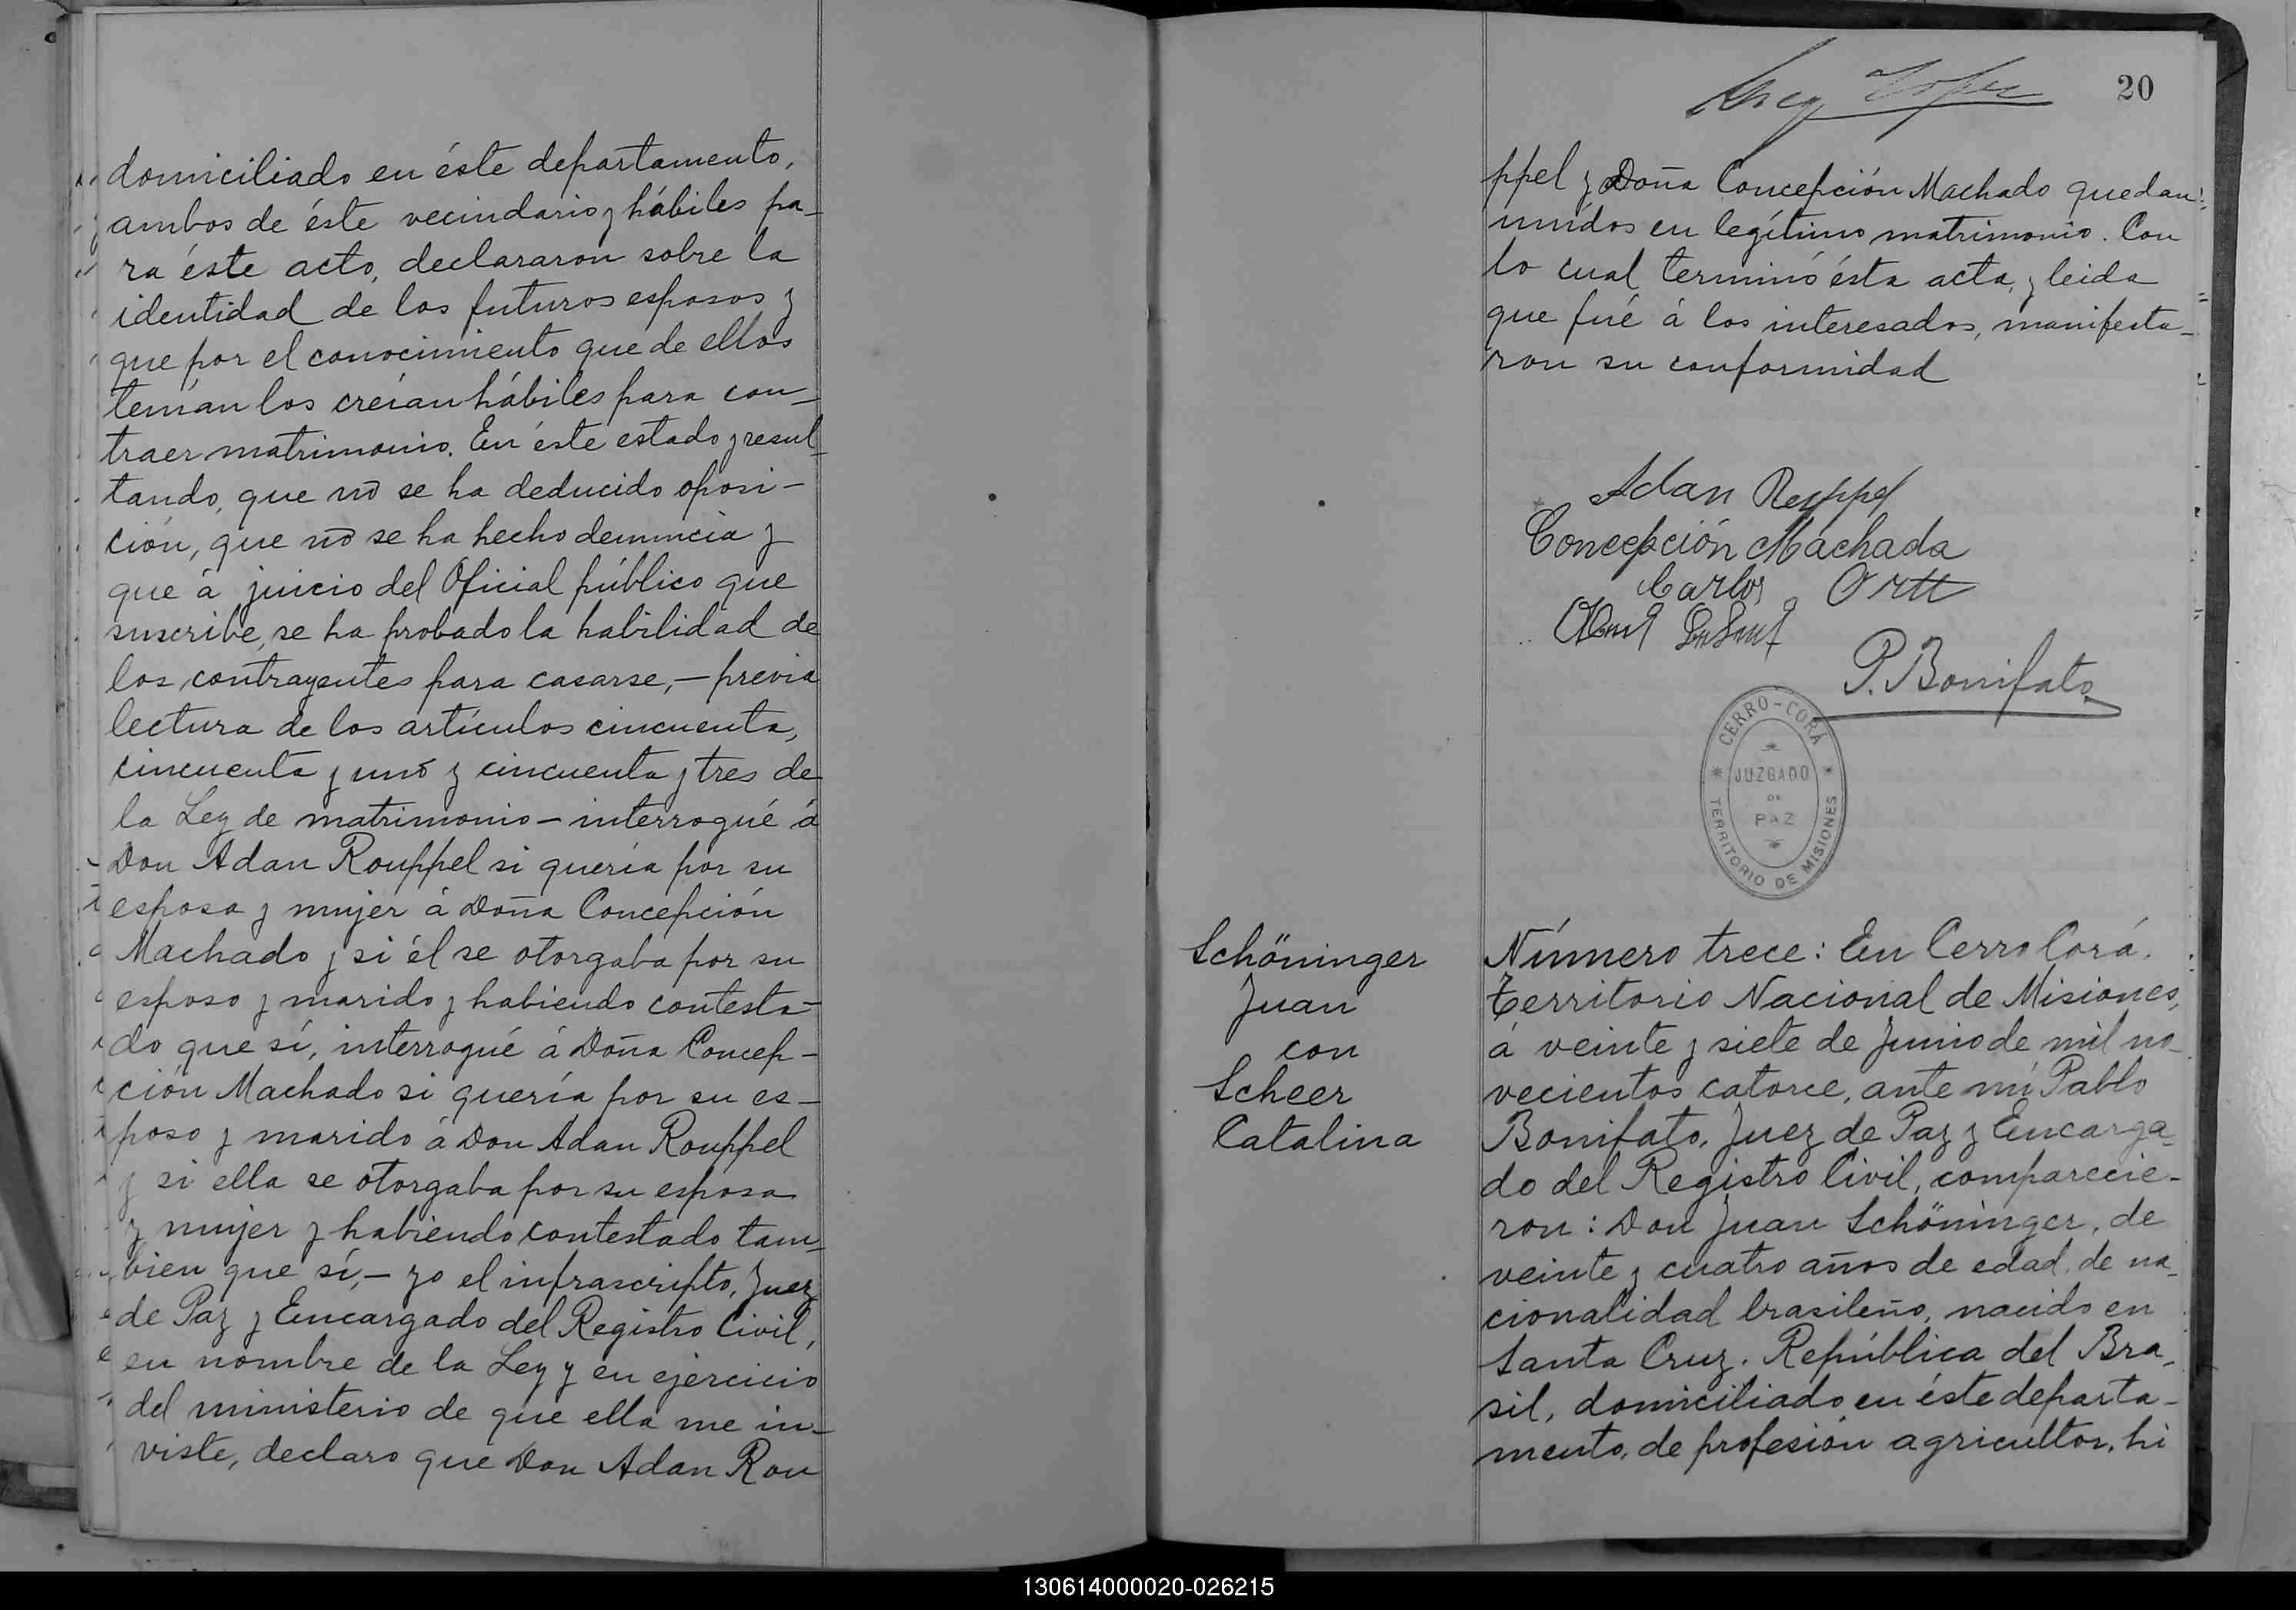 domiciliado en éste departamento,
ambos de éste vecindario y hábiles pa-
ra éste acto, declararon sobre la
identidad de los futuros esposos y
que por el conocimiento que de ellos
tenían los creían hábiles para con-
traer matrimonio. En éste estado y resul-
tando, que no se ha deducido oposi-
ción, que no se ha hecho denuncia y
que á juicio del Oficial público que
suscribe, se ha probado la habilidad de
los contrayentes para casarse, - previa
lectura de los artículos cincuenta,
cincuenta y uno y cincuenta y tres de
la Ley de matrimonio - interrogué á
Don Adan Rouppel si quería por su
esposa y mujer á Doña Concepción
Machado y si él se otorgaba por su
esposo y marido y habiendo contesta-
do que sí, interrogué á Doña Concep-
ción Machado si quería por su es-
poso y marido á Don Adan Rouppel
y si ella se otorgaba por su esposa
y mujer y habiendo contestado tam-
bien que sí, - yo el infrascripto, Juez
de Paz y Encargado del Registro Civil,
en nombre de la Ley y en ejercicio
del ministerio de que ella me in-
viste, declaro que Don Adan Rou
20
ppel y Doña Concepción Machado quedan
unidos en legítimo matrimonio. Con
lo cual terminó ésta acta, y leida
que fué á los interesados, manifesta-
ron su conformidad
Adan Reuppel
Concepción Machada
Carlos Ortt
P. Bonifato
CERRO-CORÁ
JUZGADO
DE
PAZ
TERRITORIO DE MISIONES
Schöninger
Juan
con
Scheer
Catalina
Número trece: En Cerro Corá.
Territorio Nacional de Misiones,
á veinte y siete de Junio de mil no-
vecientos catorce, ante mí Pablo
Bonifato, Juez de Paz y Encarga-
do del Registro Civil, comparecie-
ron: Don Juan Schöninger, de
veinte y cuatro años de edad, de na-
cionalidad brasileño, nacido en
Santa Cruz. República del Bra-
sil, domiciliado en éste departa-
mento, de profesión agricultor, hi
130614000020-026215